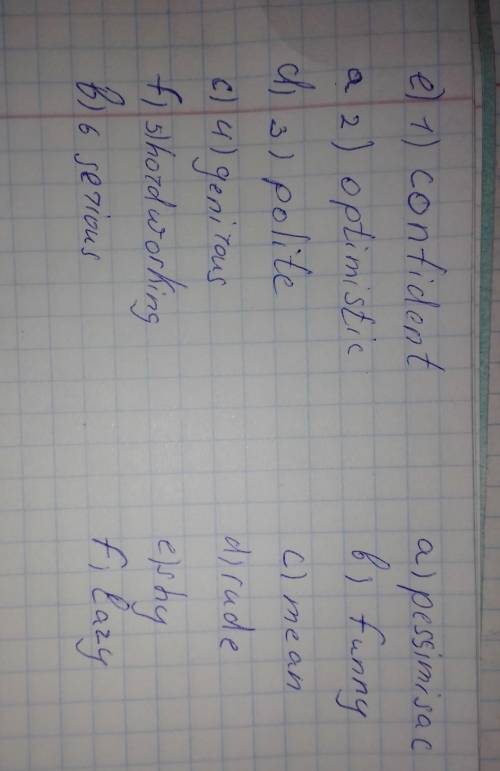 e) 1) contident
a 2) optimistic
d) 3) polite
c) 4) genirous
f) 5) hordworking
b) 6 serious
a) pessimisac
b) funny
c) mean
d) rude
e) shy
f) lazy